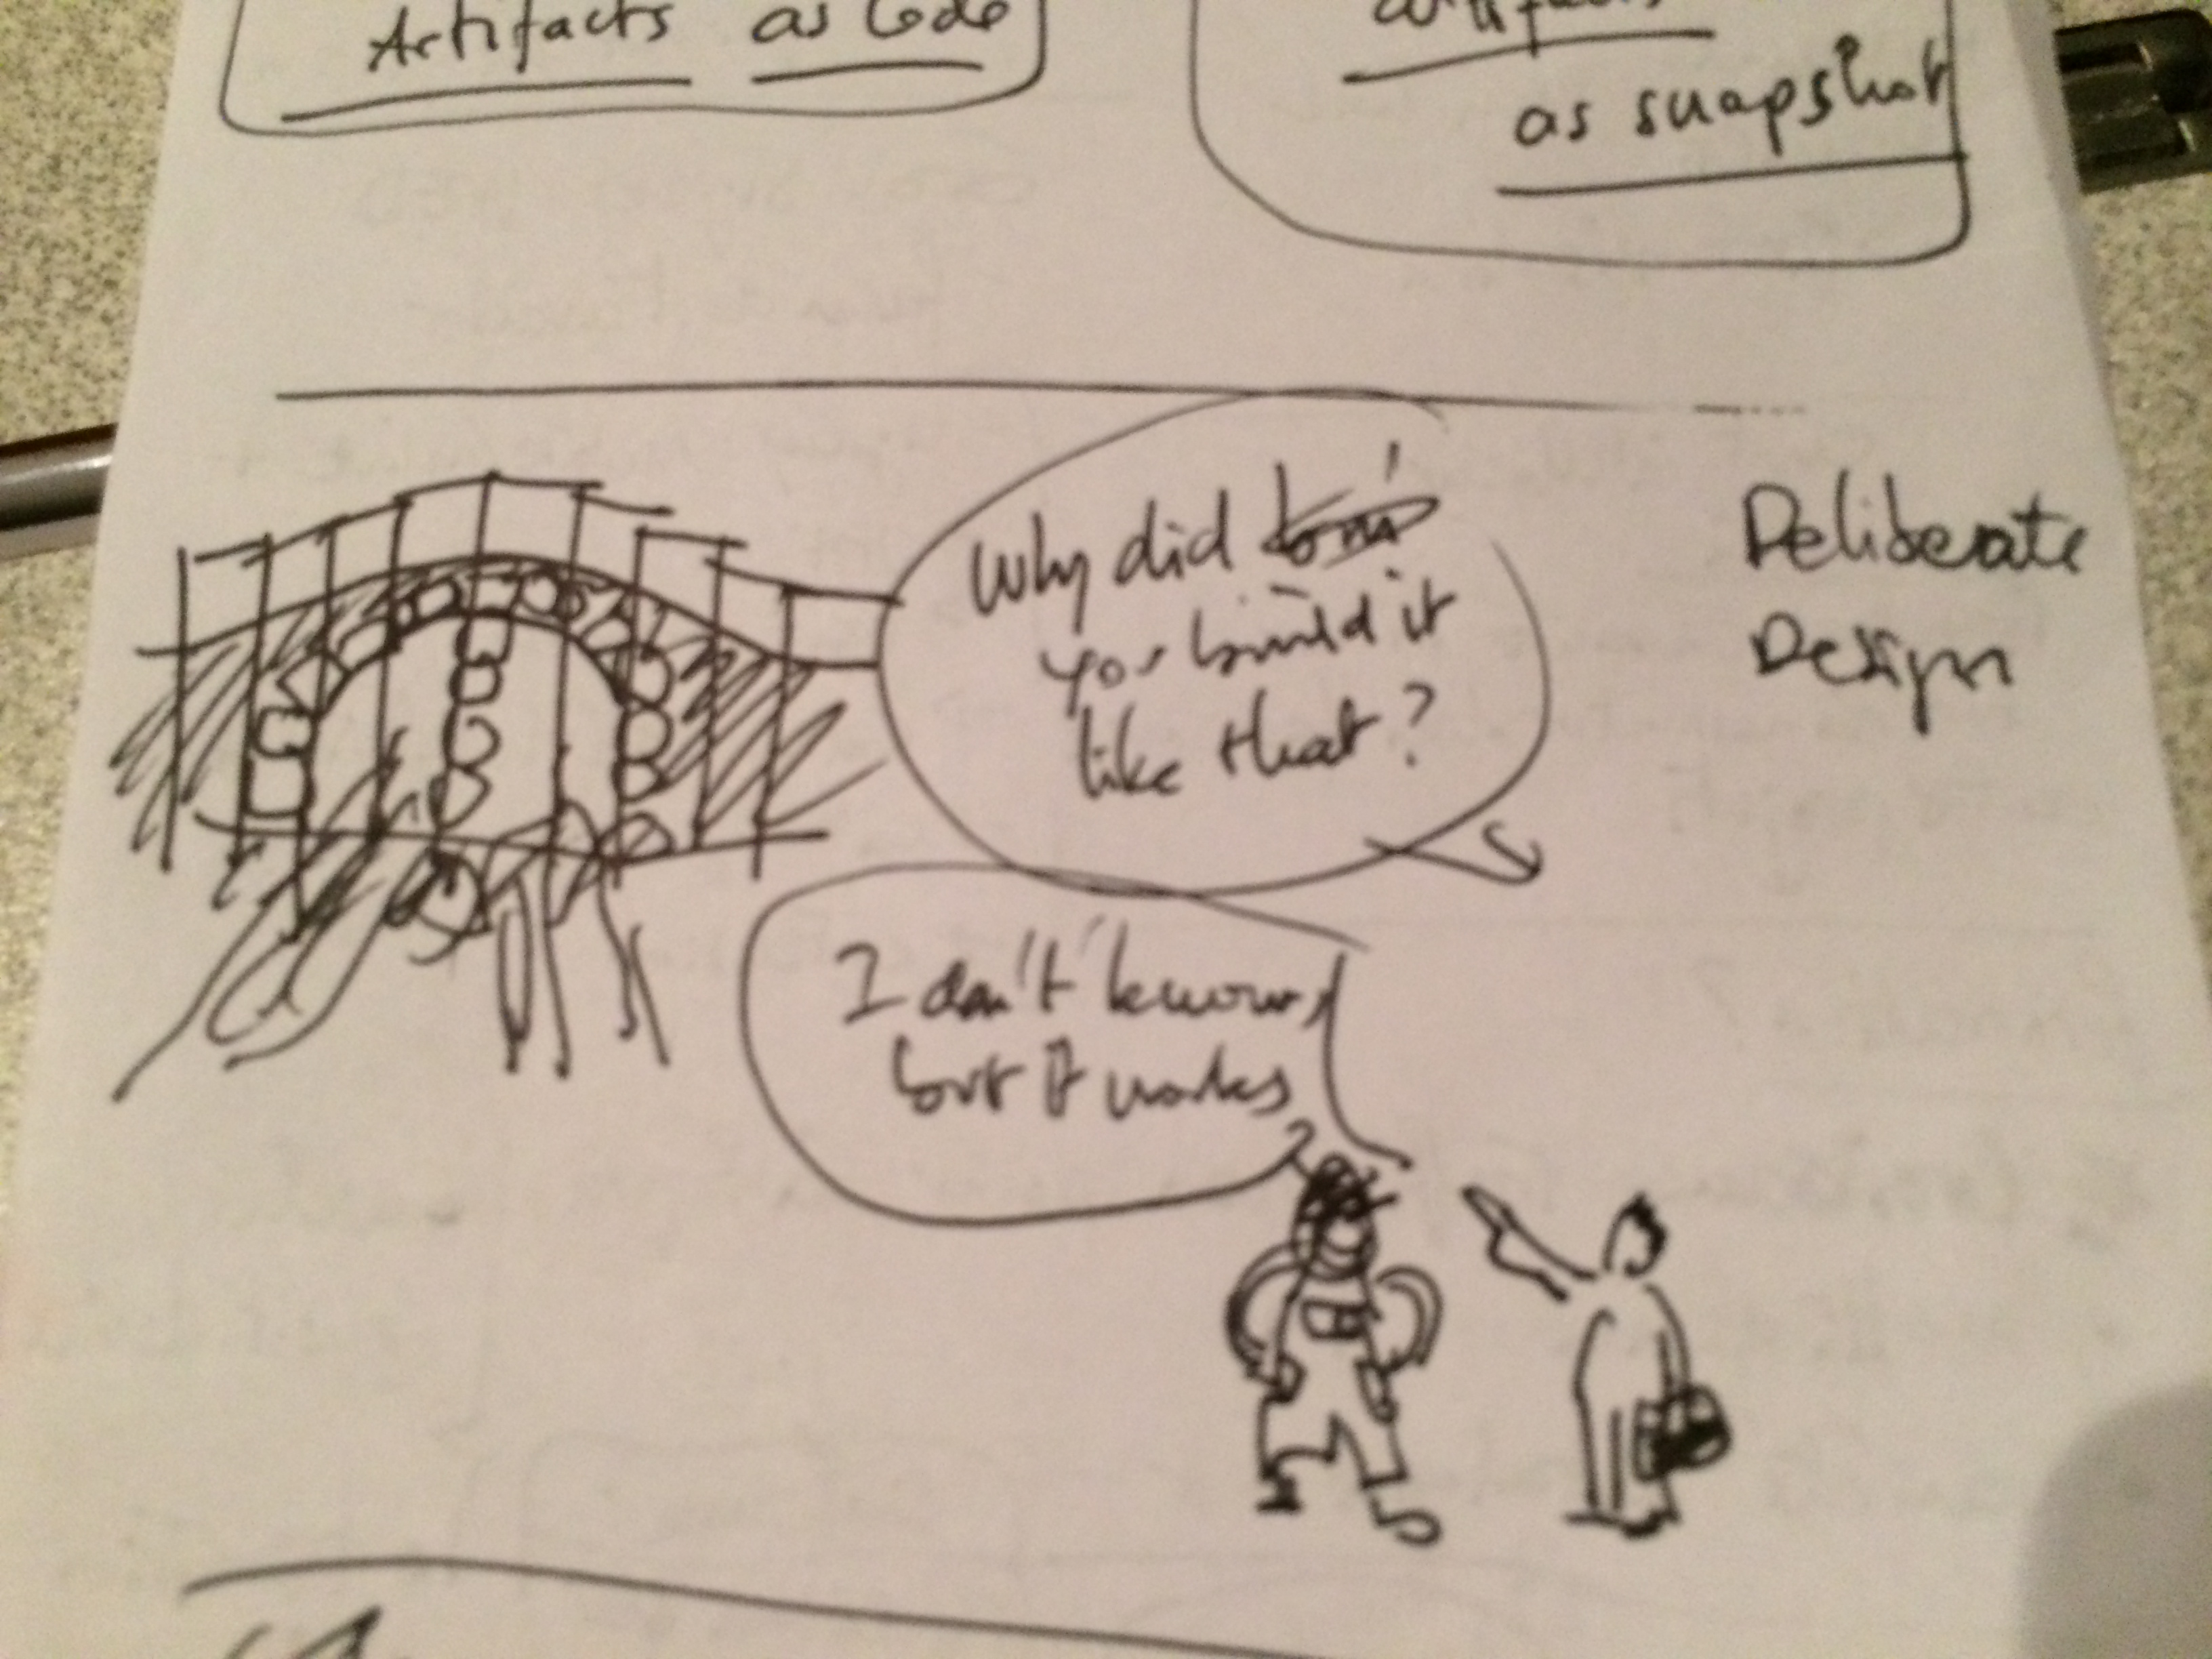 Artifacts as Code
artifacts
as snapshot
Why did
you build it
like that?
Deliberate
Design
I don't know,
but it works